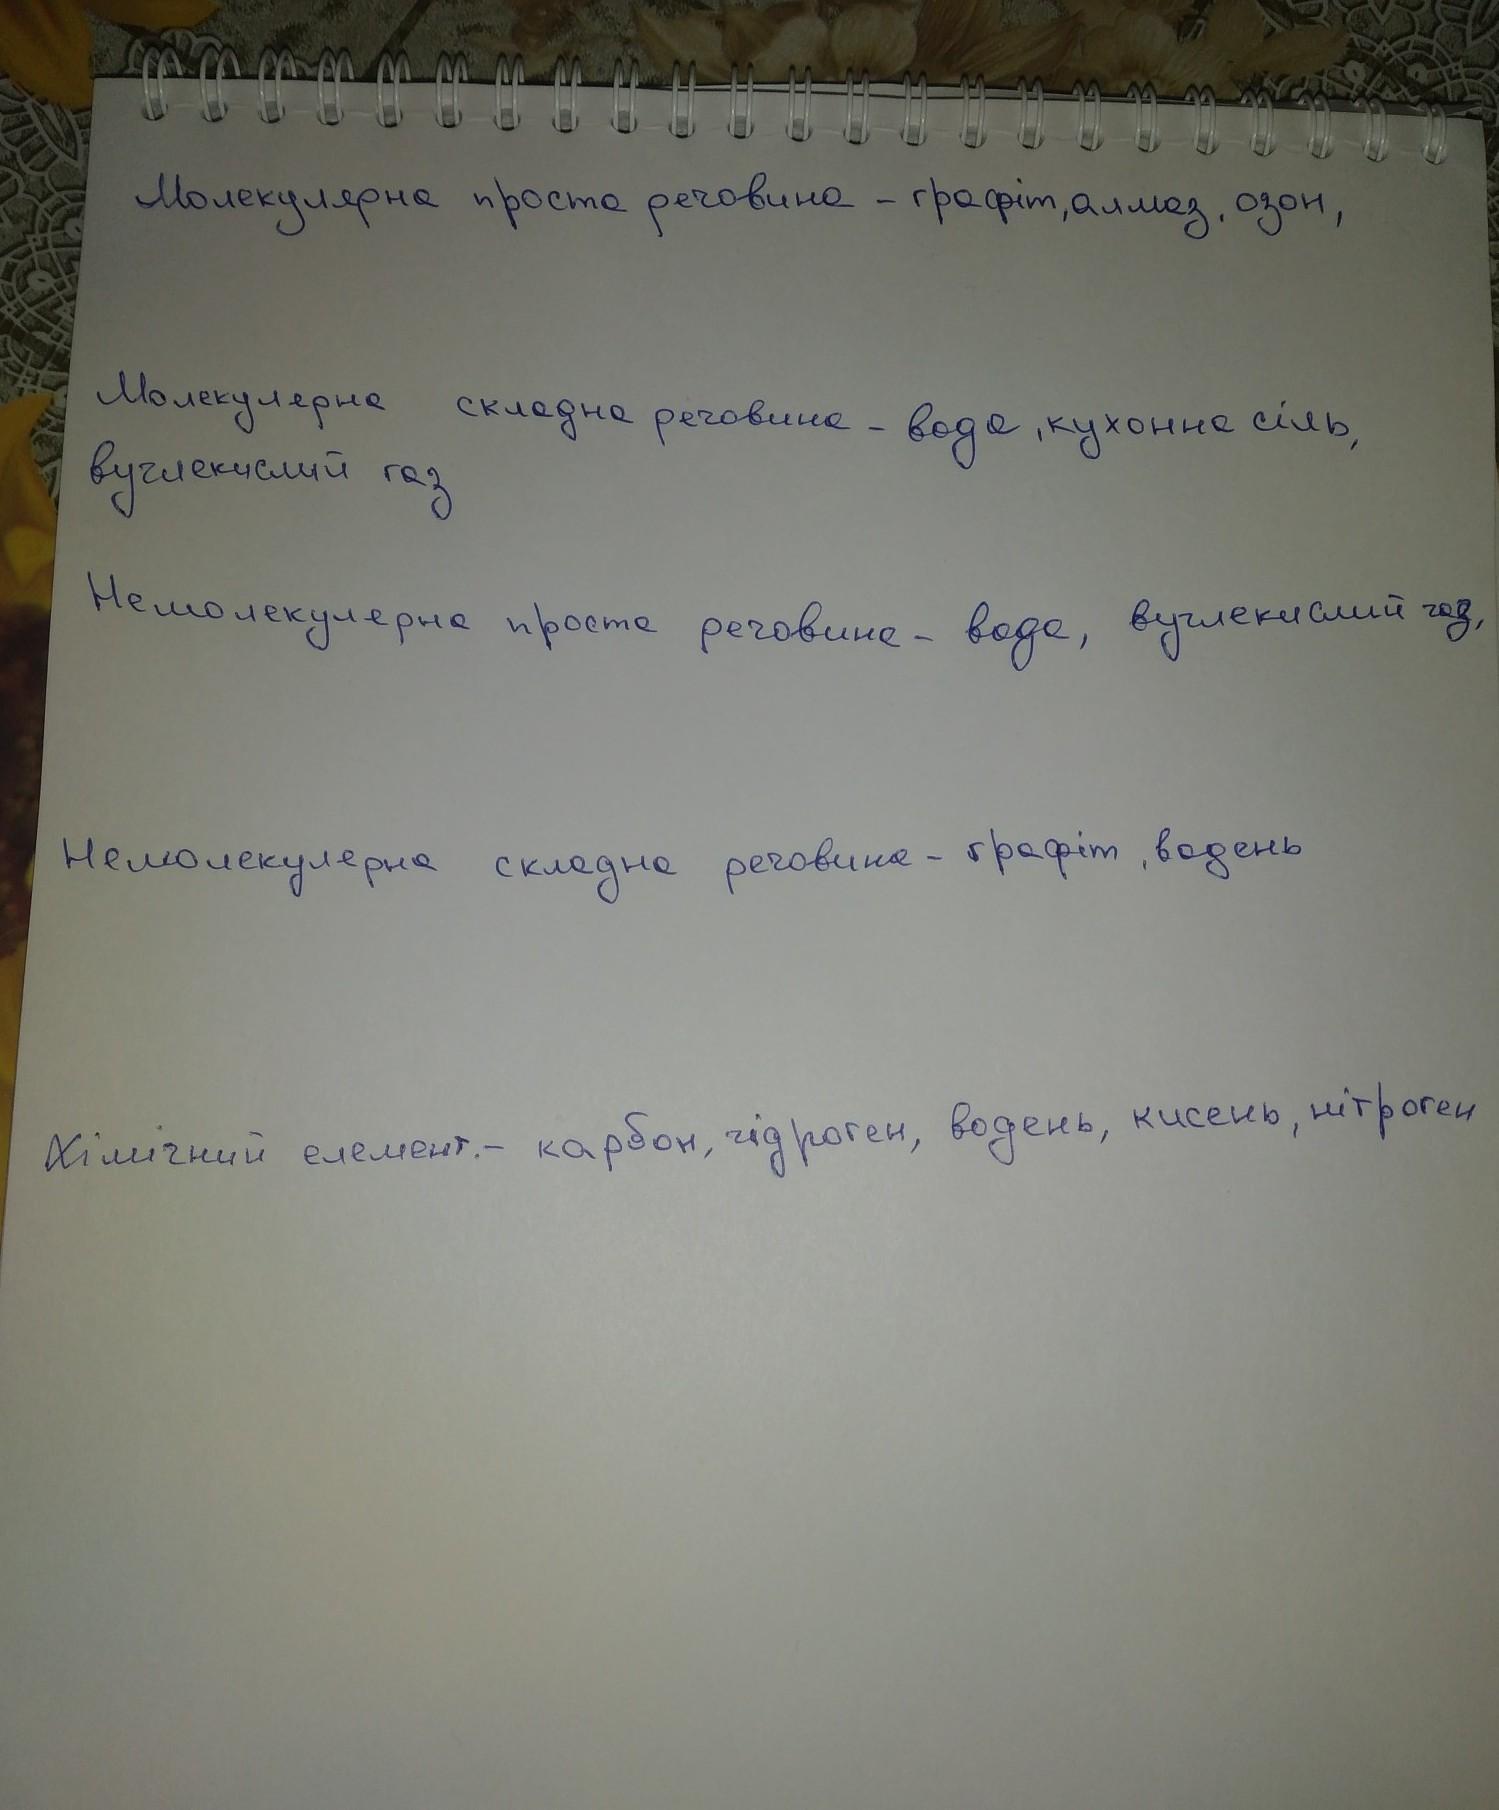 Молекулярна проста речовина - графіт, алмаз, озон,
Молекулярна складна речовина - вода, кухонна сіль,
вуглекислий газ
Немолекулярна проста речовина - вода, вуглекислий газ,
Немолекулярна складна речовина - графіт, водень
Хімічний елемент. - карбон, гідроген, водень, кисень, нітроген